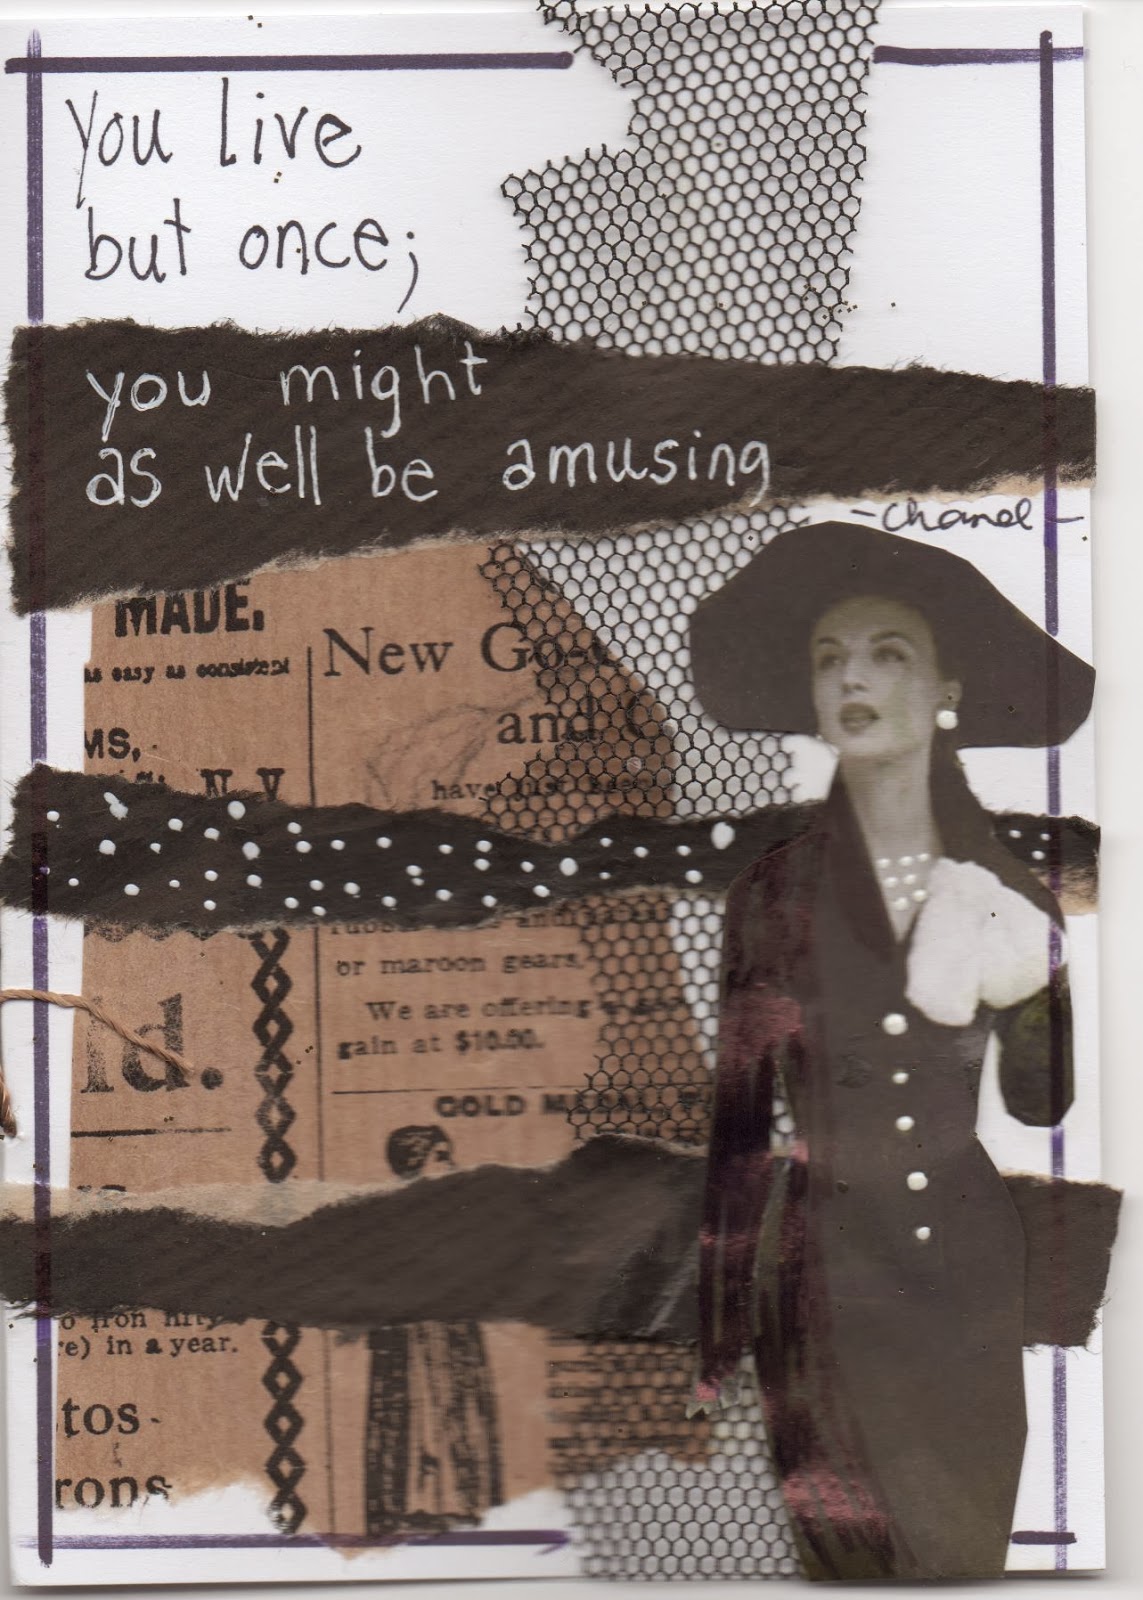 you live
but once;
you might
as well be amusing
-chanel-
MADE.
as easy as consistent
New Go
and
MS,
have just been
N. Y.
or maroon gears.
We are offering
gain at $10.00.
ld.
GOLD
iron fifty
re) in a year.
tos
rons